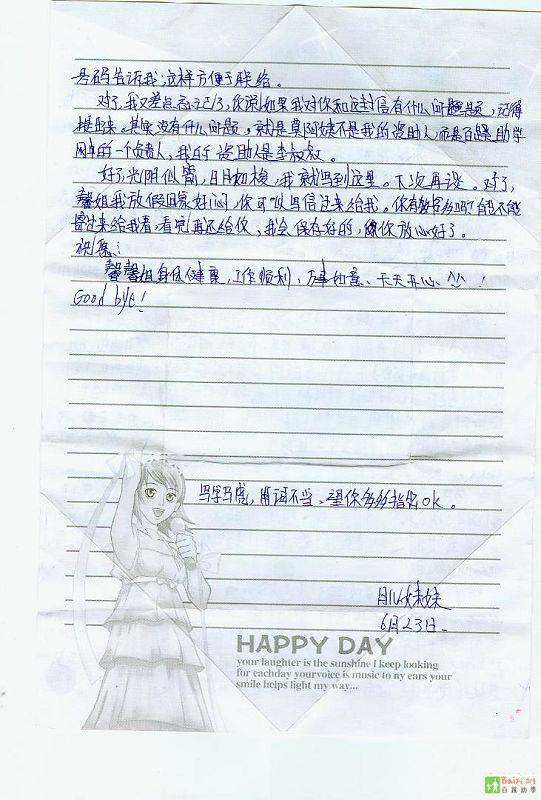 号码告诉我,这样方便于联络。
对了,我又差点忘记了,你说如果我对你和这封信有什么问题,记得
提出来。其实没有什么问题,就是莫阿姨不是我的资助人,而是百蹊助学
网的一个负责人,我的资助人是李叔叔。
好了,光阴似箭,日月如梭,我就写到这里。下次再谈。对了,
馨姐我放假回家好闷,你可以写信过来给我。你有数学书吗?可不可
寄过来给我看,看完再还给你、我会保存好的,你放心好了。
祝愿:
馨馨姐身体健康,工作顺利、万事如意、天天开心 ^^ !
Good bye!
马字马虎,用词不当、望你多多指名OK。
妹妹
6月23日.
HAPPY DAY
your laughter is the sunshine I keep looking
for eachday yourvoice is music to ny ears your
smile helps light my way...
BaiXi.org
百蹊助學